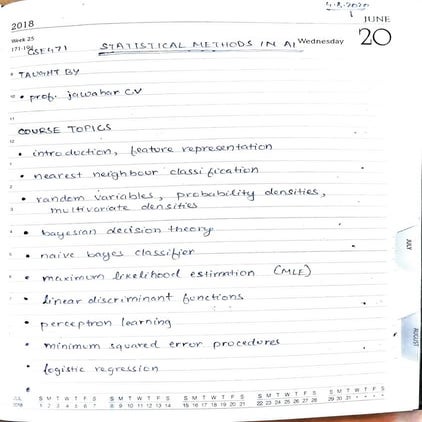 2018
JUNE
Week 25
Wednesday
20
CSE471
STATISTICAL METHODS IN AI
TAUGHT BY
• prof. jawahar C.V
COURSE TOPICS
• introduction, feature representation
• nearest neighbour classification
• random variables, probability densities,
multivariate densities
• bayesian decision theory
• naive bayes classifier
• maximum likelihood estimation (MLE)
• linear discriminant functions
• perceptron learning
• minimum squared error procedures
• logistic regression
JULY
AUGUST
JUL S M T W T F S S M T W T F S S M T W T F S S M T W T F S S M T W T F S
2018 1 2 3 4 5 6 7 8 9 10 11 12 13 14 15 16 17 18 19 20 21 22 23 24 25 26 27 28 29 30 31